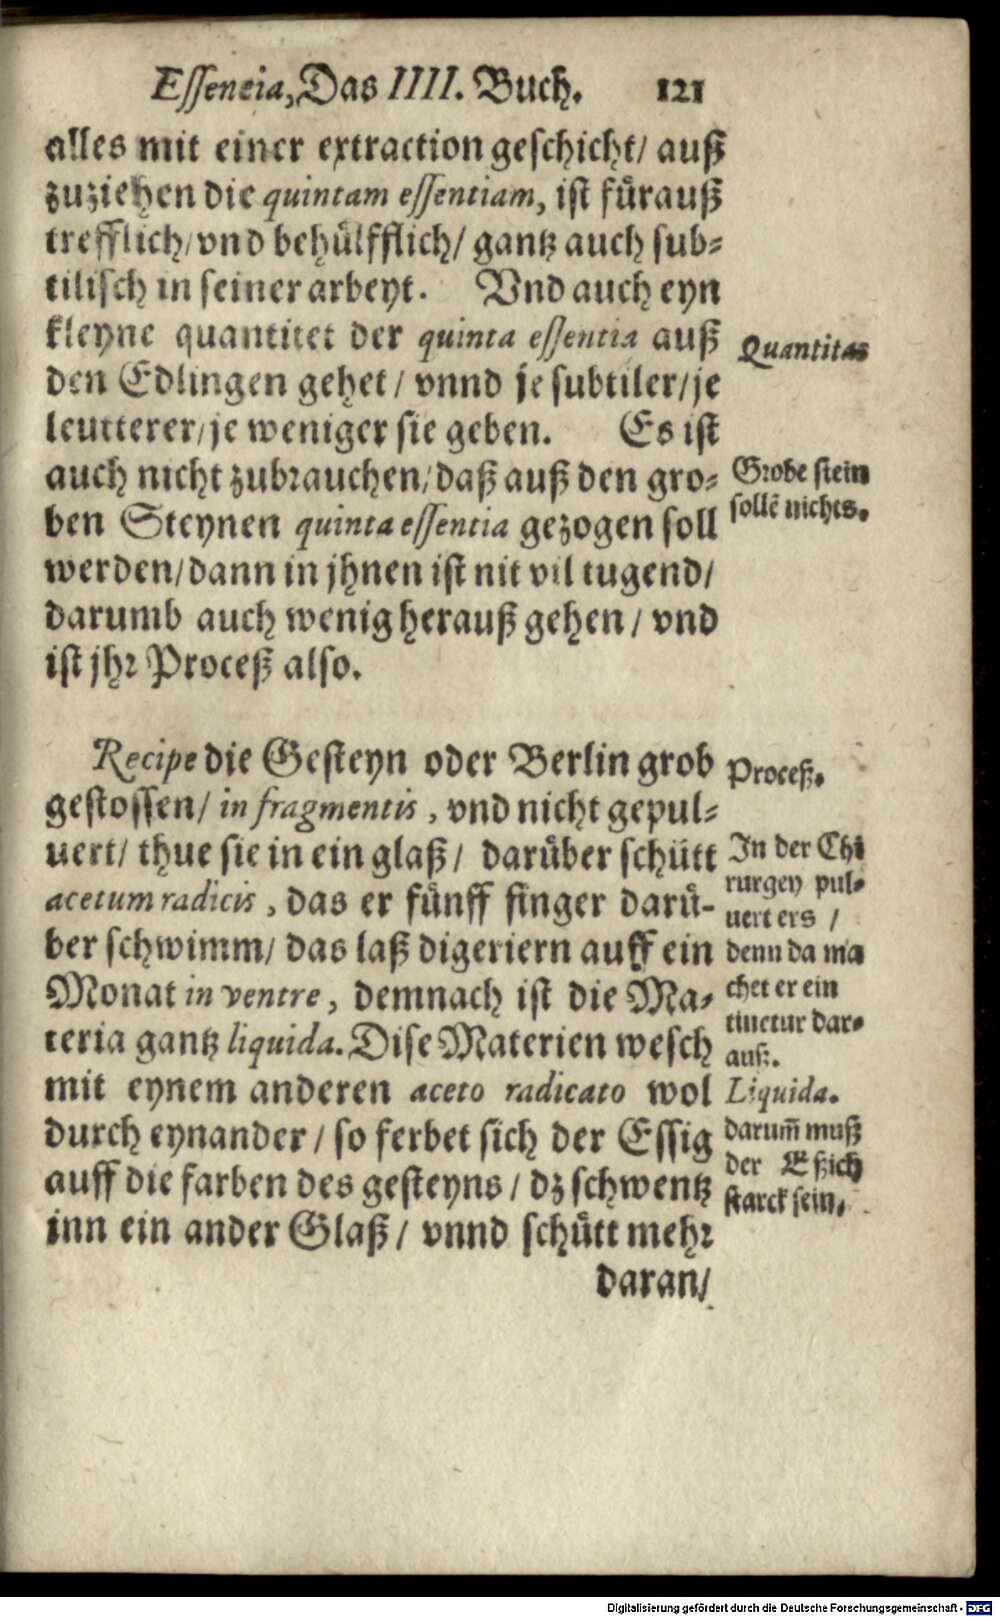 Essentia, Das IIII. Buch. 121
alles mit einer extraction geschicht/ auß
zuziehen die quintam essentiam, ist fürauß
trefflich/ vnd behülfflich/ gantz auch sub-
tilisch in seiner arbeyt. Vnd auch eyn
kleyne quantitet der quinta essentia auß
den Edlingen gehet/ vnnd je subtiler/ je
leutterer/ je weniger sie geben. Es ist
auch nicht zubrauchen/ daß auß den gro-
ben Steynen quinta essentia gezogen soll
werden/ dann in jhnen ist nit vil tugend/
darumb auch wenig herauß gehen/ vnd
ist jhr Proceß also.
Quantitas
Grobe stein
sollẽ nichts.
Recipe die Gesteyn oder Berlin grob
gestossen/ in fragmentis, vnd nicht gepul-
uert/ thue sie in ein glaß/ darüber schütt
acetum radicis, das er fünff finger darü-
ber schwimm/ das laß digeriern auff ein
Monat in ventre, demnach ist die Ma-
teria gantz liquida. Dise Materien wesch
mit eynem anderen aceto radicato wol
durch eynander/ so ferbet sich der Essig
auff die farben des gesteyns/ dz schwentz
inn ein ander Glaß/ vnnd schütt mehr
daran/
Proceß.
In der Chi
rurgey pul-
uert ers /
denn da ma
chet er ein
tinctur dar-
auß.
Liquida.
darum̃ muß
der Eßich
starck sein.
Digitalisierung gefördert durch die Deutsche Forschungsgemeinschaft - DFG